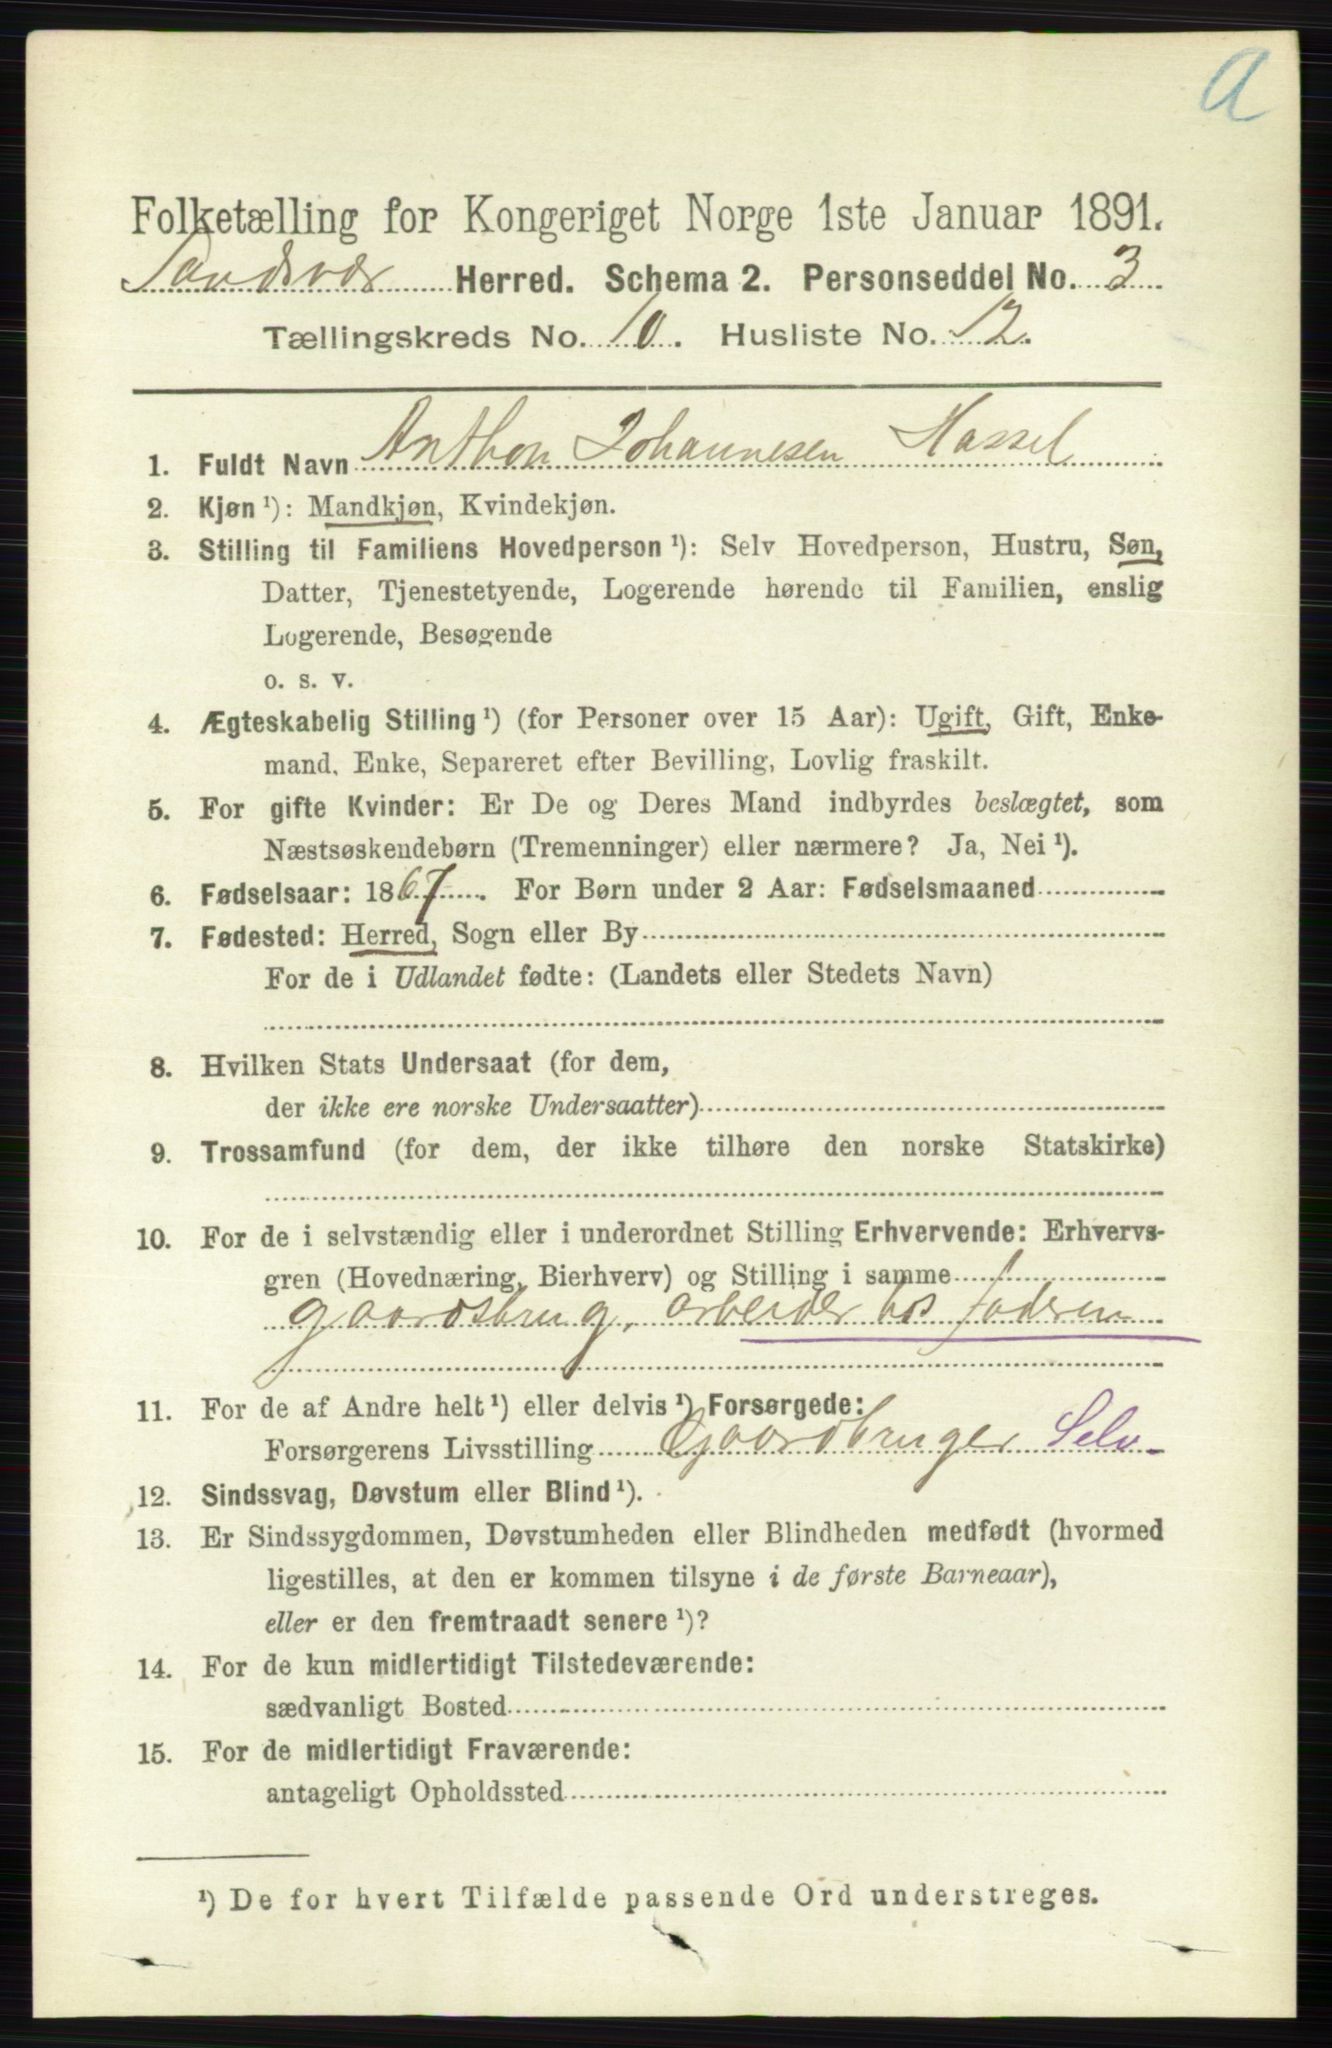 A
Folketælling for Kongeriget Norge 1ste Januar 1891.
Sandsvær Herred. Schema 2. Personseddel No. 3
Tællingskreds No. 10. Husliste No. 12.
1. Fuldt Navn Anthon Johannesen Hassel
2. Kjøn ¹): Mandkjøn, Kvindekjøn.
3. Stilling til Familiens Hovedperson ¹): Selv Hovedperson, Hustru, Søn,
Datter, Tjenestetyende, Logerende hørende til Familien, enslig
Logerende, Besøgende
o. s. v.
4. Ægteskabelig Stilling ¹) (for Personer over 15 Aar): Ugift, Gift, Enke-
mand, Enke, Separeret efter Bevilling, Lovlig fraskilt.
5. For gifte Kvinder: Er De og Deres Mand indbyrdes beslægtet, som
Næstsøskendebørn (Tremenninger) eller nærmere? Ja, Nei ¹).
6. Fødselsaar: 1867. For Børn under 2 Aar: Fødselsmaaned
7. Fødested: Herred, Sogn eller By
For de i Udlandet fødte: (Landets eller Stedets Navn)
8. Hvilken Stats Undersaat (for dem,
der ikke ere norske Undersaatter)
9. Trossamfund (for dem, der ikke tilhøre den norske Statskirke)
10. For de i selvstændig eller i underordnet Stilling Erhvervende: Erhvervs-
gren (Hovednæring, Bierhverv) og Stilling i samme
gaardsbrug, arbeider hos faderen
11. For de af Andre helt ¹) eller delvis ¹) Forsørgede:
Forsørgerens Livsstilling Gaardbruger Selv-
12. Sindssvag, Døvstum eller Blind ¹).
13. Er Sindssygdommen, Døvstumheden eller Blindheden medfødt (hvormed
ligestilles, at den er kommen tilsyne i de første Barneaar),
eller er den fremtraadt senere ¹)?
14. For de kun midlertidigt Tilstedeværende:
sædvanligt Bosted
15. For de midlertidigt Fraværende:
antageligt Opholdssted
¹) De for hvert Tilfælde passende Ord understreges.